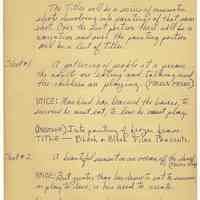 The Titles will be a series of
shots dissolving into paintings of that same
shot. Over the first portion there will be a
narration and over the painting portion
will be a list of titles.
Shot #1 A gathering of people at a picnic
the adults are eating and talking and
the children are playing. (FREEZE FRAME)
VOICE: Mankind has learned the basics, to
survive he must eat, to love he must play.
(DISSOLVE) Into painting of frozen frame
TITLE - Black n Blue Films Presents.
Shot #2 A beautiful
VOICE: But greater than his desire to eat, to survive
or play to love, is his need to create.